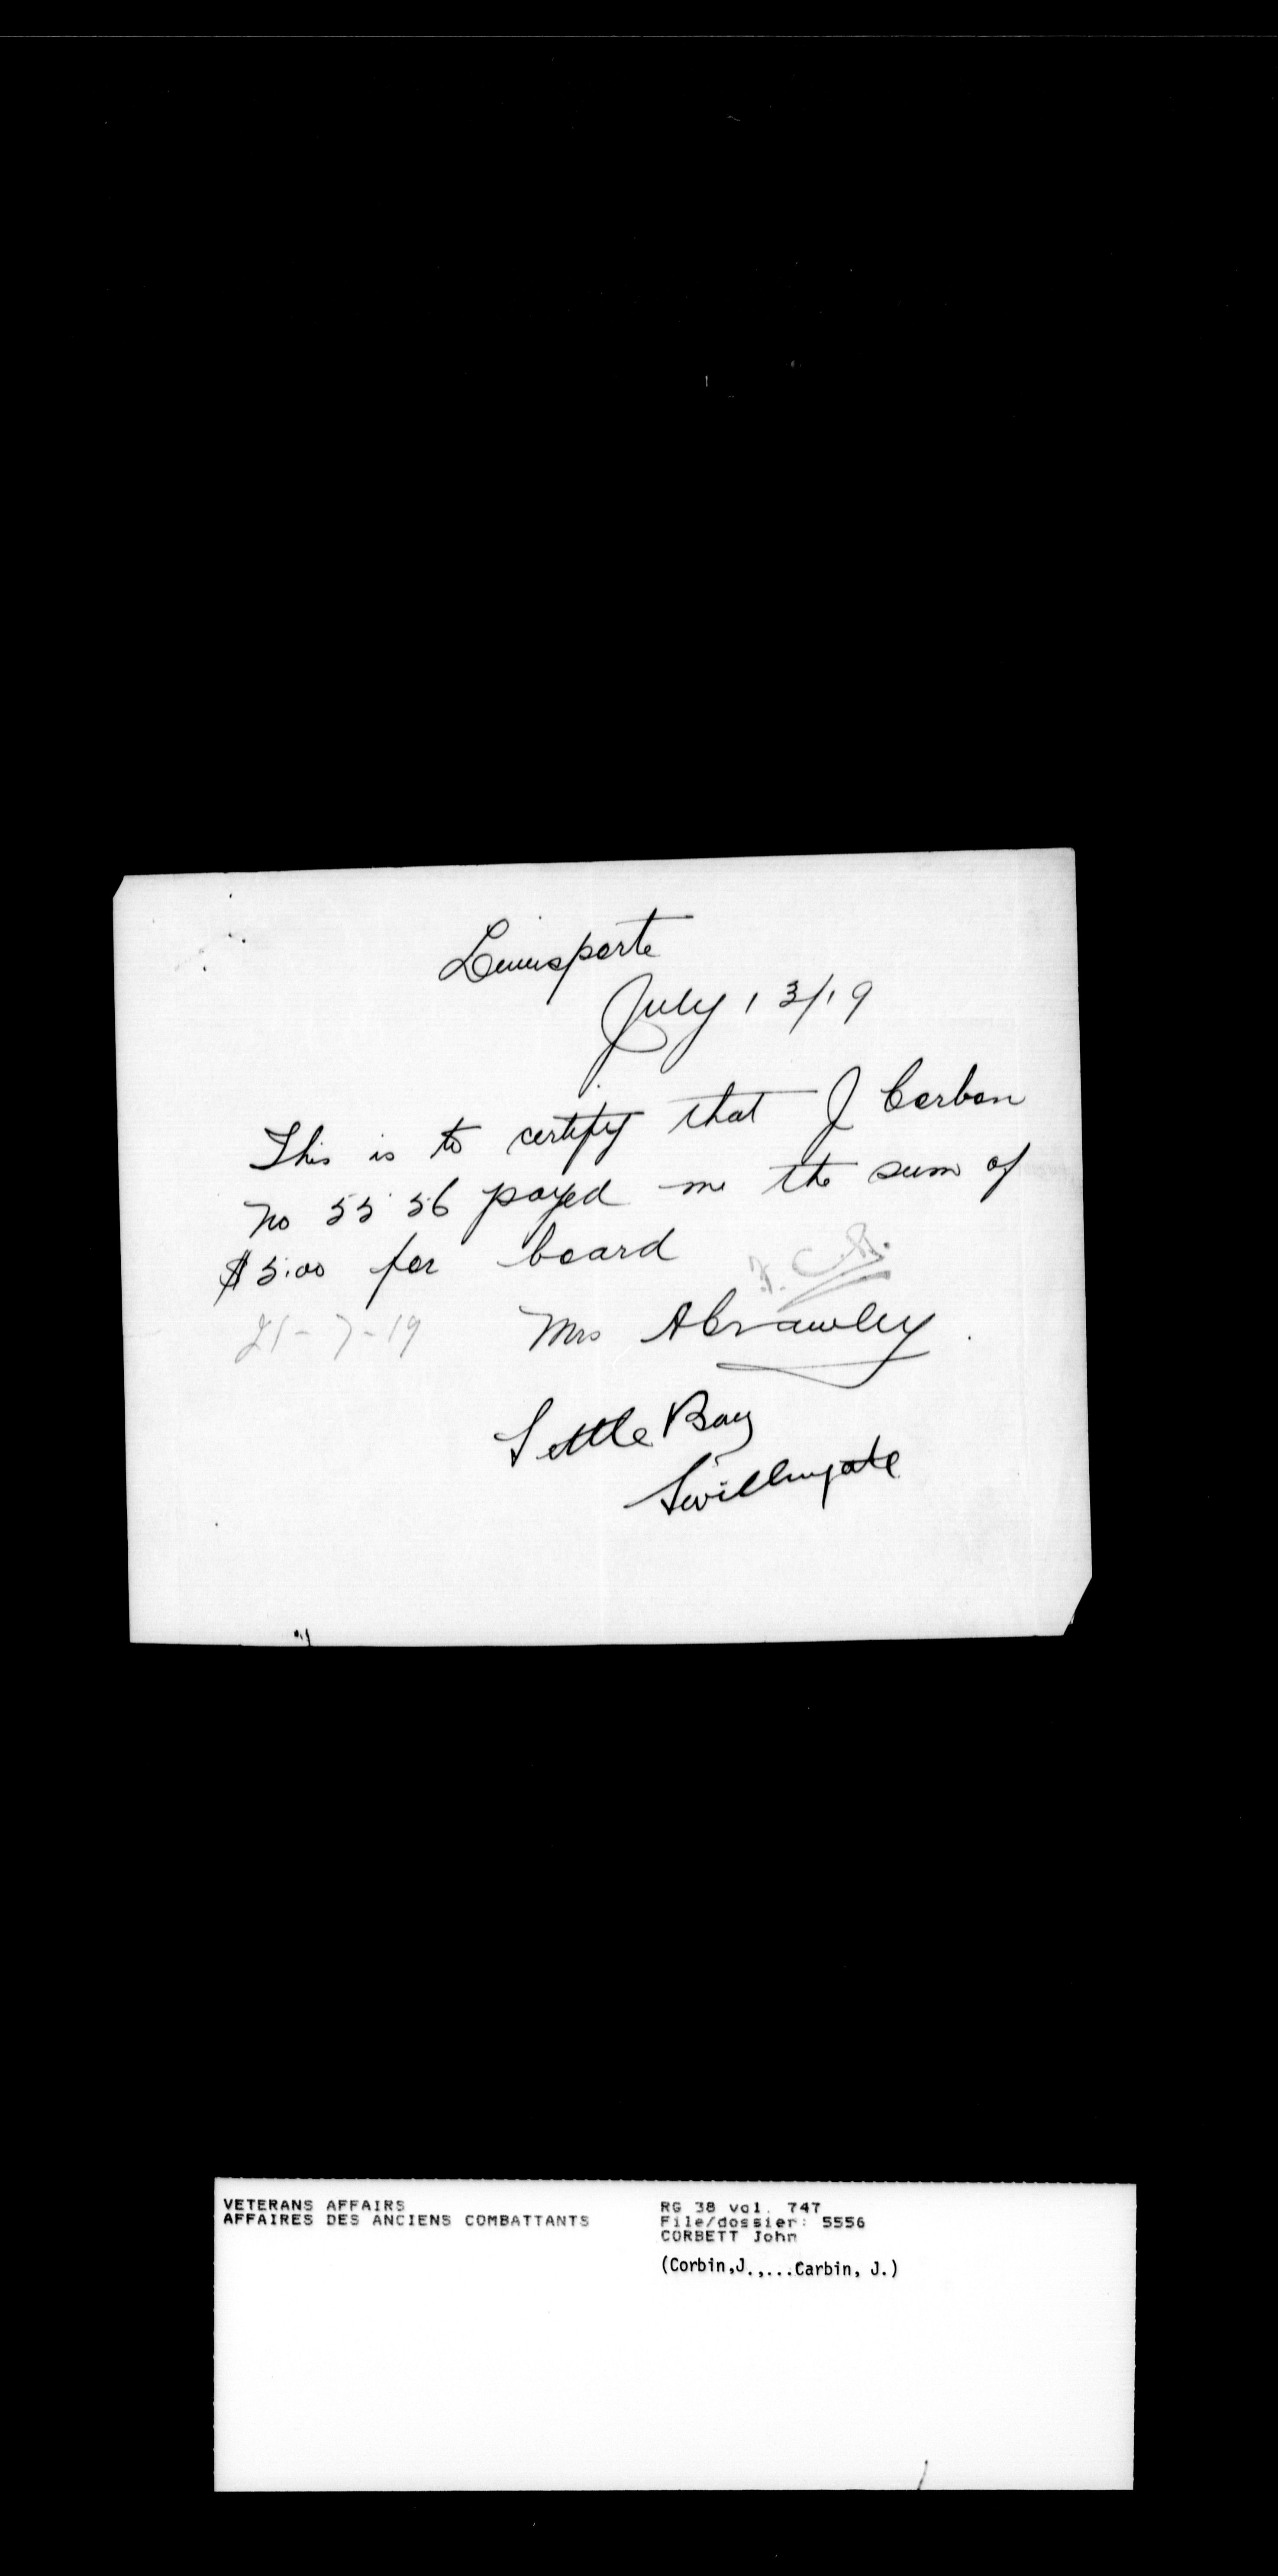 Lewisporte
July 13/19
This is to certify that J Corbon
No 55 56 payed me the sum of
$5.00 for board
21-7-19 Mrs A Crawley
Little Bay
Twillingate
VETERANS AFFAIRS
AFFAIRES DES ANCIENS COMBATTANTS
RG 38 vol. 747
File/dossier: 5556
CORBETT John
(Corbin,J.,...Carbin, J.)